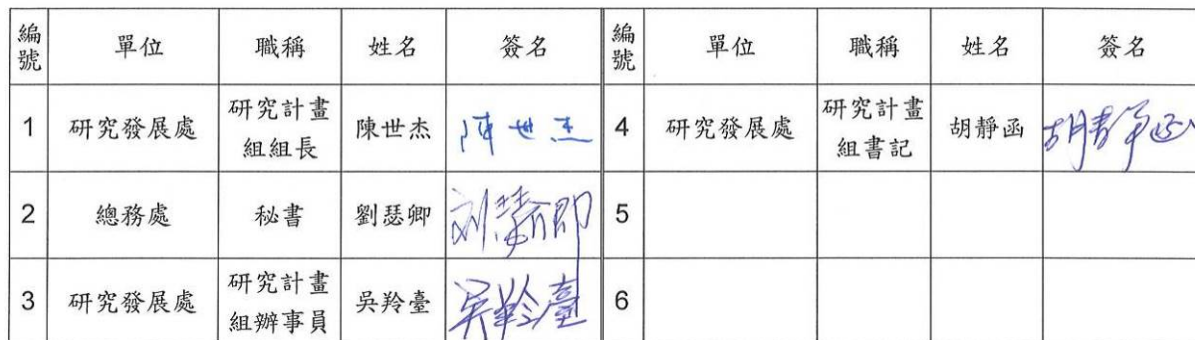 編號 單位 職稱 姓名 簽名 編號 單位 職稱 姓名 簽名
1 研究發展處 研究計畫組組長 陳世杰 陳世杰 4 研究發展處 研究計畫組書記 胡靜函 胡靜函
2 總務處 秘書 劉瑟卿 5
3 研究發展處 研究計畫組辦事員 吳羚臺 吳羚臺 6